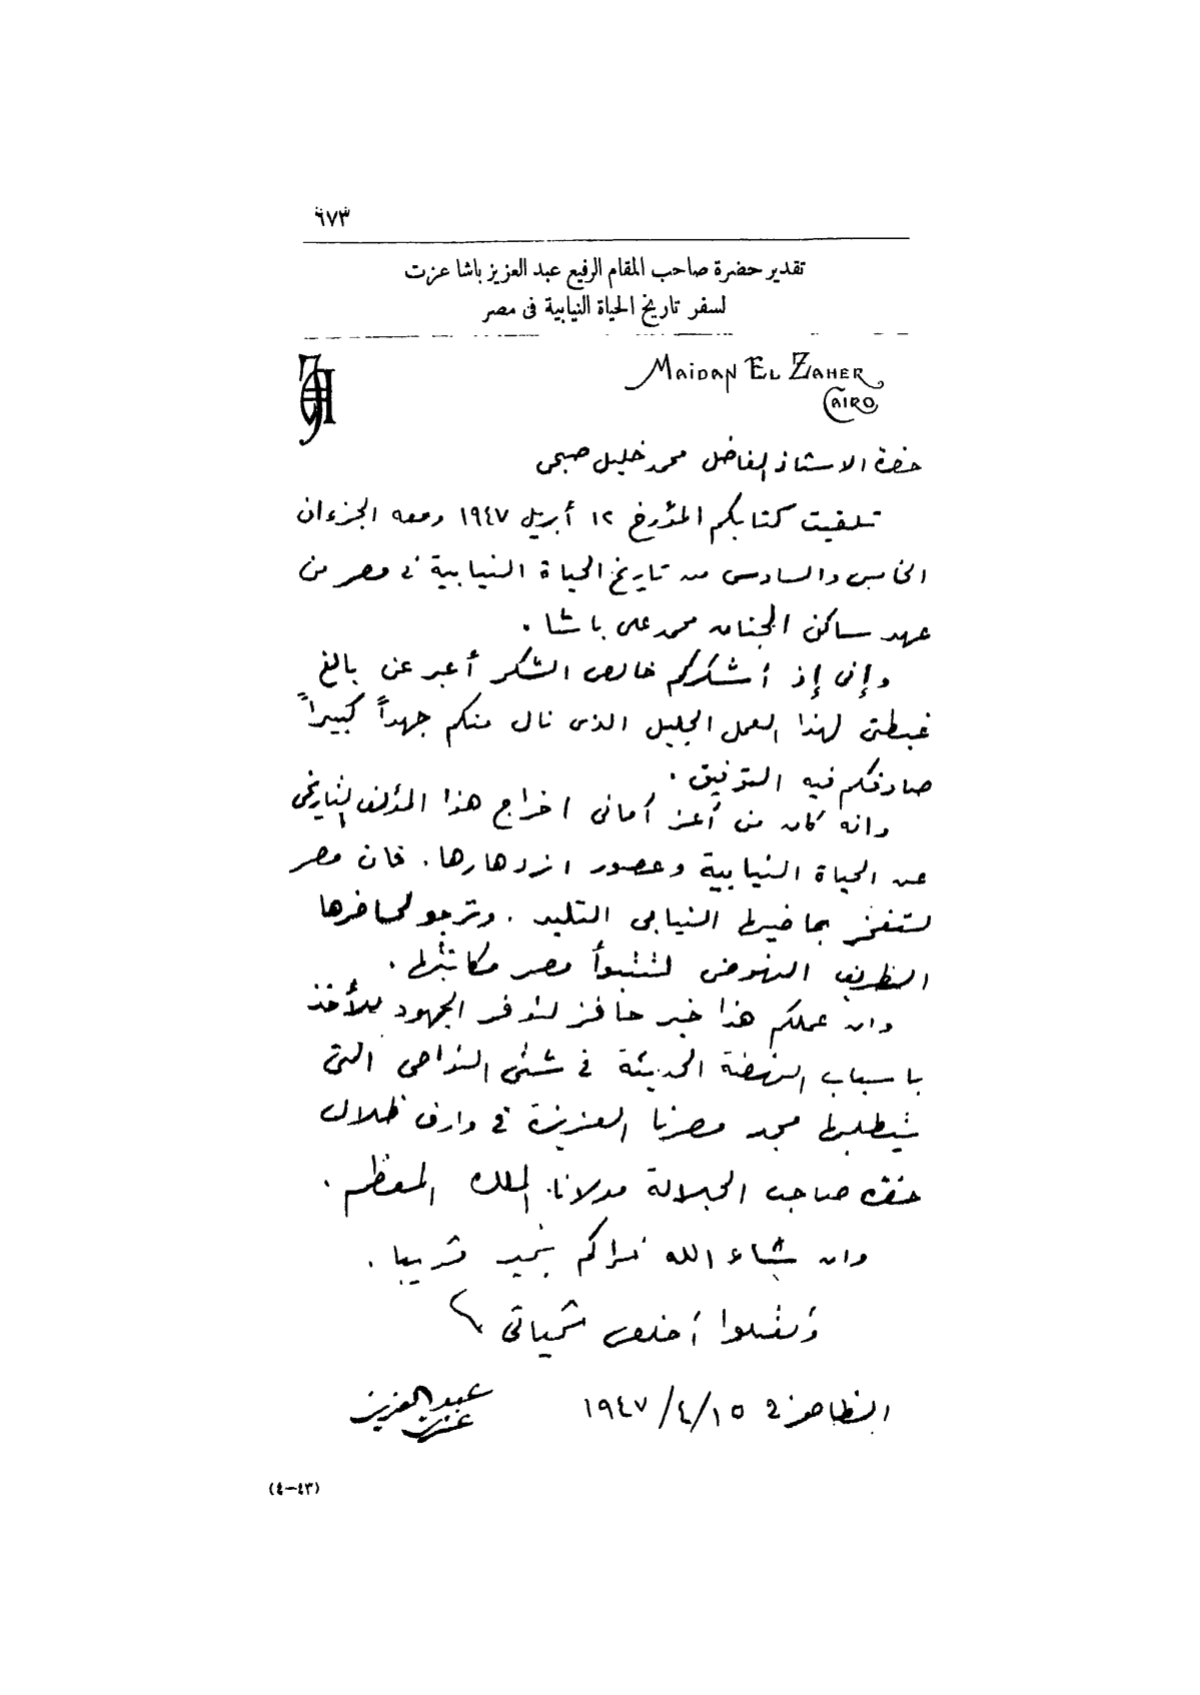 ٦٧٣
تقدير حضرة صاحب المقام الرفيع عبد العزيز باشا عزت
لسفر تاريخ الحياة النيابية فى مصر
MAIDAN EL ZAHER,
CAIRO,
حضرة الاستاذ الفاضل محمد خليل صبحى
تلقيت كتابكم المؤرخ ١٢ أبريل ١٩٤٧ ومعه الجزءان
الخامس والسادس من تاريخ الحياة النيابية فى مصر من
عهد ساكن الجنان محمد على باشا .
وإنى إذ أشكركم خالص الشكر أعبر عن بالغ
غبطتى لهذا العمل الجليل الذى نال منكم جهداً كبيراً
صادفكم فيه التوفيق .
وانه كان من أعز أمانى اخراج هذا المؤلف التاريخى
عن الحياة النيابية وعصور ازدهارها . فان مصر
لتفخر بماضيها النيابى التليد . وترجو لحاضرها
النهوض لتتبوأ مصر مكانتها .
وان عملكم هذا خير حافز لتوفر الجهود للأخذ
باسباب النهضة الحديثة فى شتى النواحى التى
يتطلبها مجد مصرنا العزيزة فى وارف ظلال
حضرة صاحب الجلالة مولانا الملك المعظم .
وان شاء الله نراكم بخير قريبا .
وتفضلوا أخلص تحياتى
الظاهر فى ١٥/٤/١٩٤٧
عبد العزيز
عزت
(٤٣-٤)